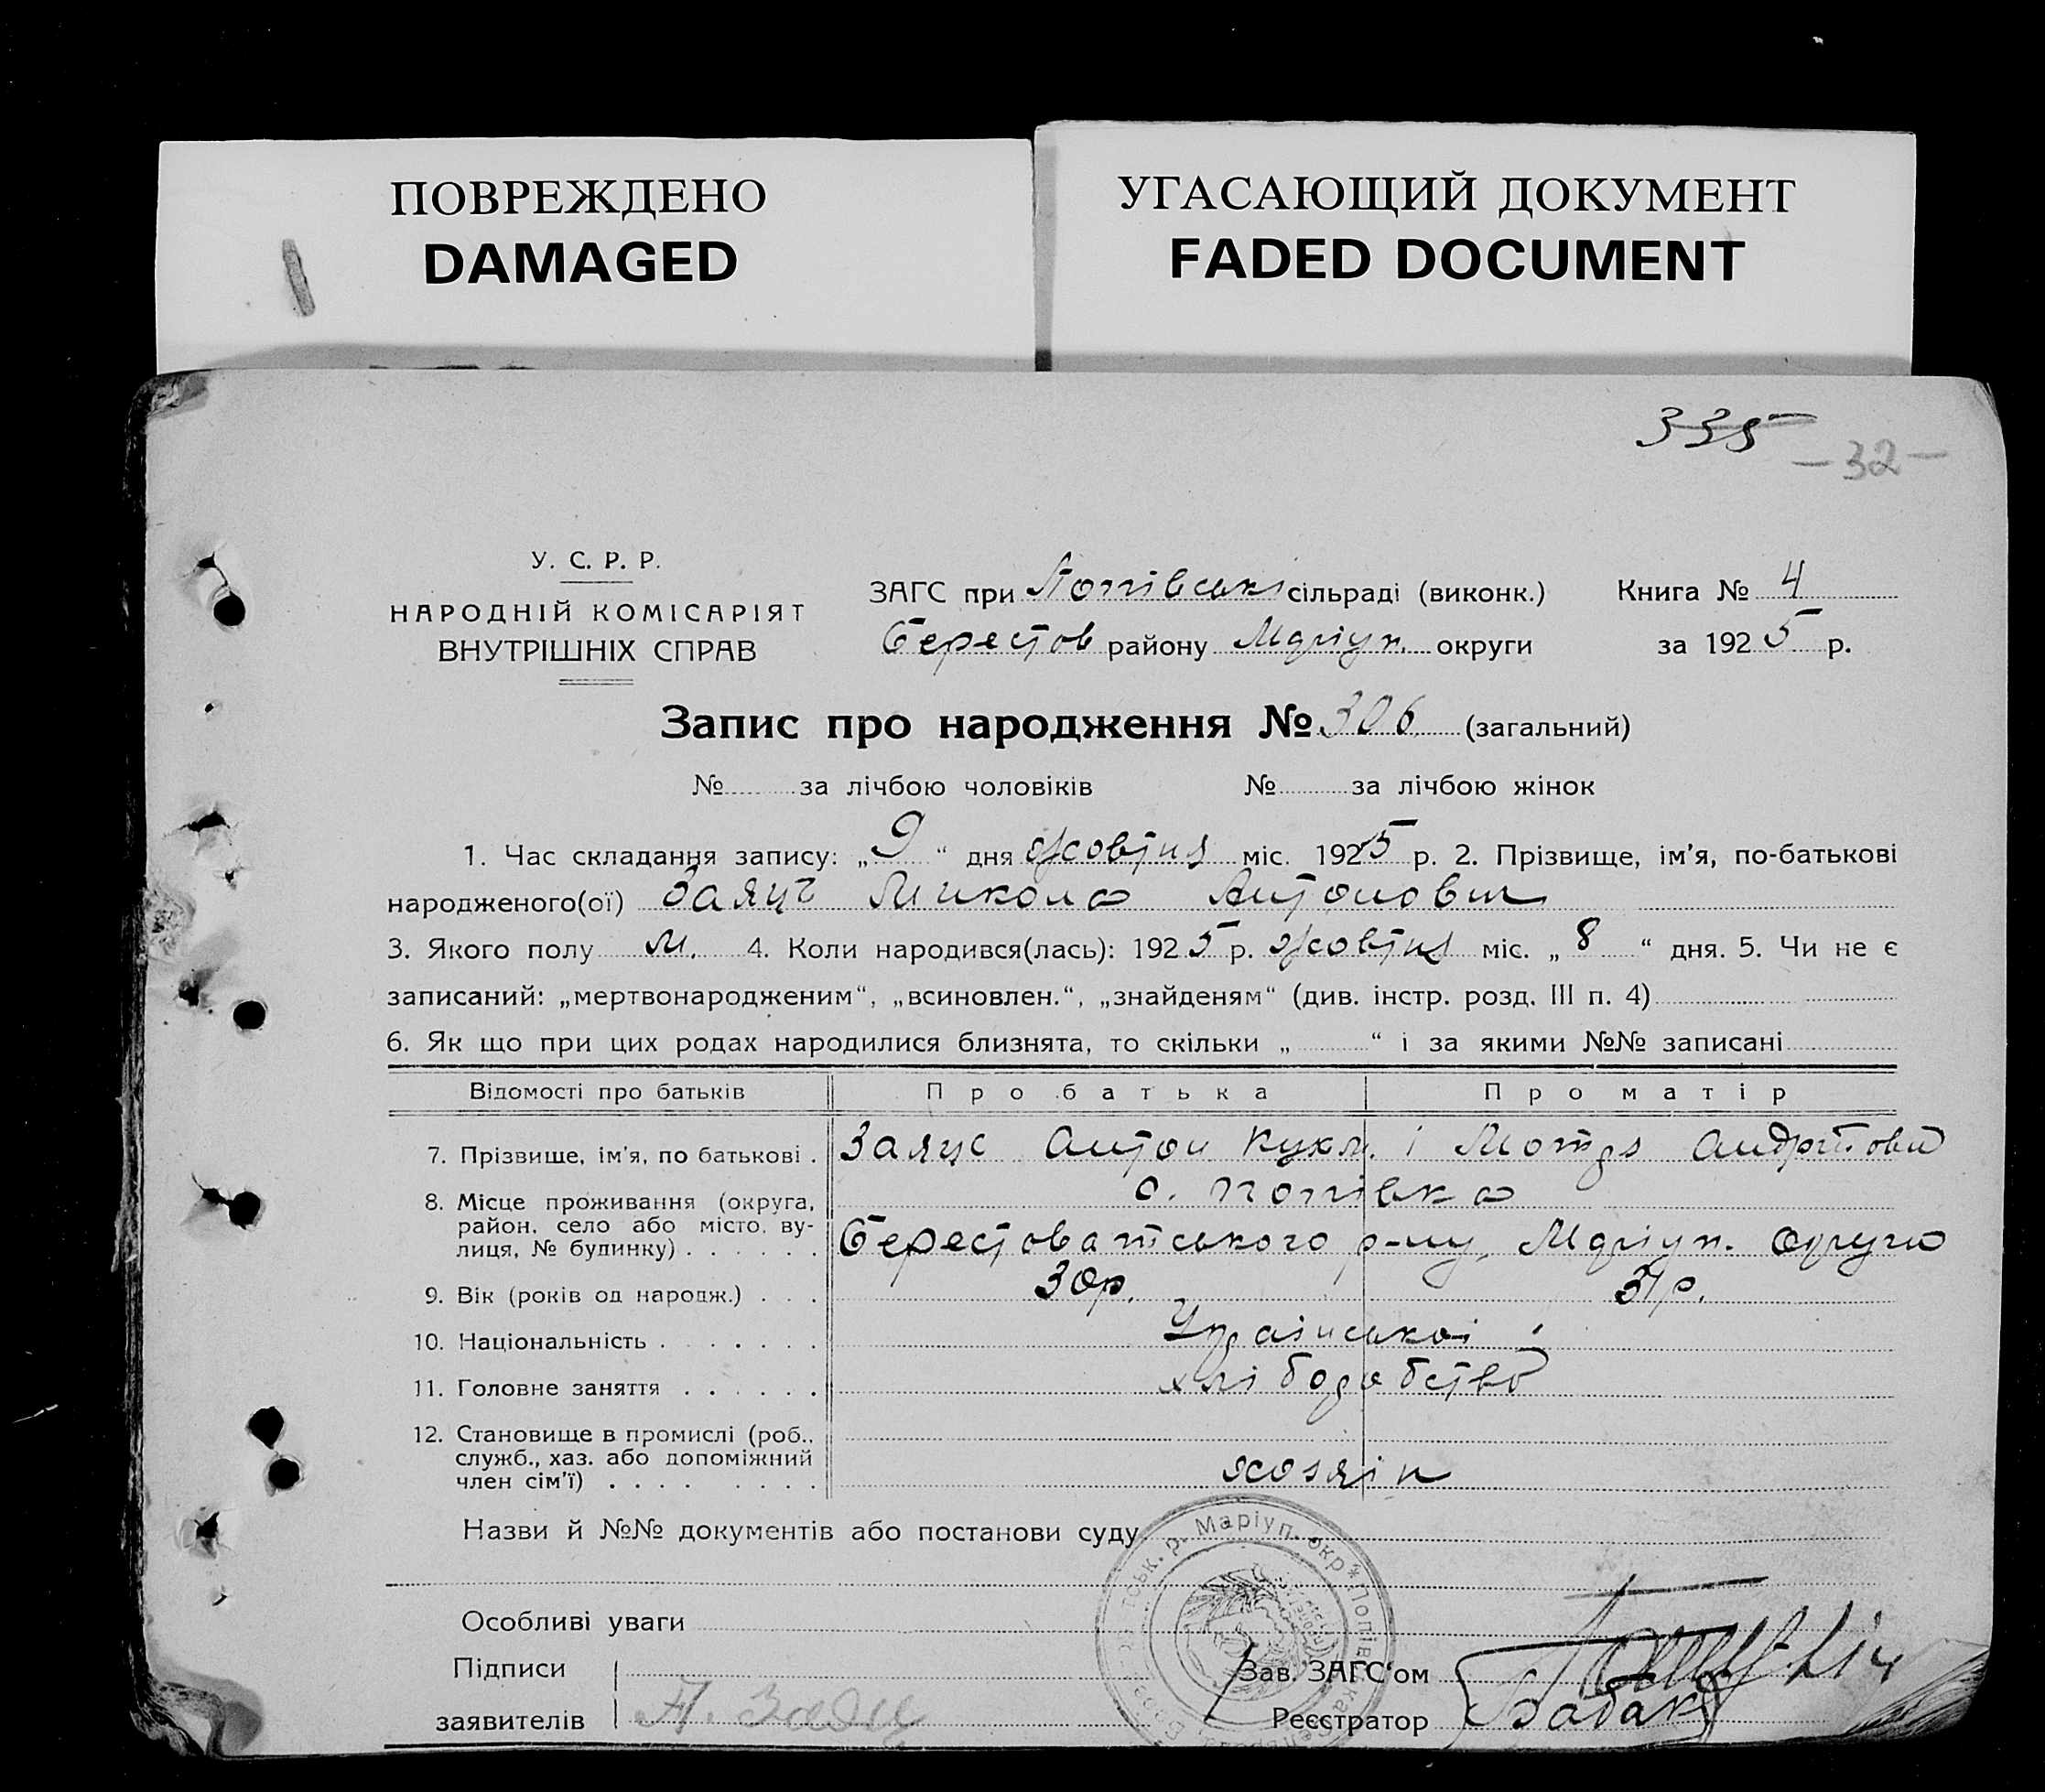 ПОВРЕЖДЕНО
DAMAGED
УГАСАЮЩИЙ ДОКУМЕНТ
FADED DOCUMENT
335
—32—
У. С. Р. Р.
НАРОДНІЙ КОМІСАРІЯТ
ВНУТРІШНІХ СПРАВ
ЗАГС при Попівські сільраді (виконк.)
Берестов району Маріуп. округи
Книга № 4
за 1925 р.
Запис про народження № 306 (загальний)
№ за лічбою чоловіків № за лічбою жінок
1. Час складання запису: „9“ дня жовтня міс. 1925 р. 2. Прізвище, ім’я, по-батькові
народженого(ої) Заяць Микола Антонович
3. Якого полу м. 4. Коли народився(лась): 1925 р. жовтня міс. „8“ дня. 5. Чи не є
записаний: „мертвонародженим“, „всиновлен.“, „знайденям“ (див. інстр. розд. III п. 4)
6. Як що при цих родах народилися близнята, то скільки „ “ і за якими №№ записані
Відомості про батьків Про батька Про матір
7. Прізвище, ім’я, по батькові . Заяць Антон і Мотря
8. Місце проживання (округа, с. Попівка
район, село або місто, ву-
лиця, № будинку) . . . . . . Берестоватського р-ну, Маріуп. округи
9. Вік (років од нагодж.) . . . 30р. 31р.
10. Національність . . . . . . Української
11. Головне заняття . . . . . . хліборобство
12. Становище в промислі (роб.,
служб., хаз. або допоміжний
член сім’ї) . . . . . . . . хозяін
Назви й №№ документів або постанови суду
тськ. р. Маріуп. окр * Попів
Особливі уваги
Підписи
заявителів А. Заяц
Зав. ЗАГС‘ом
Реєстратор Бабак